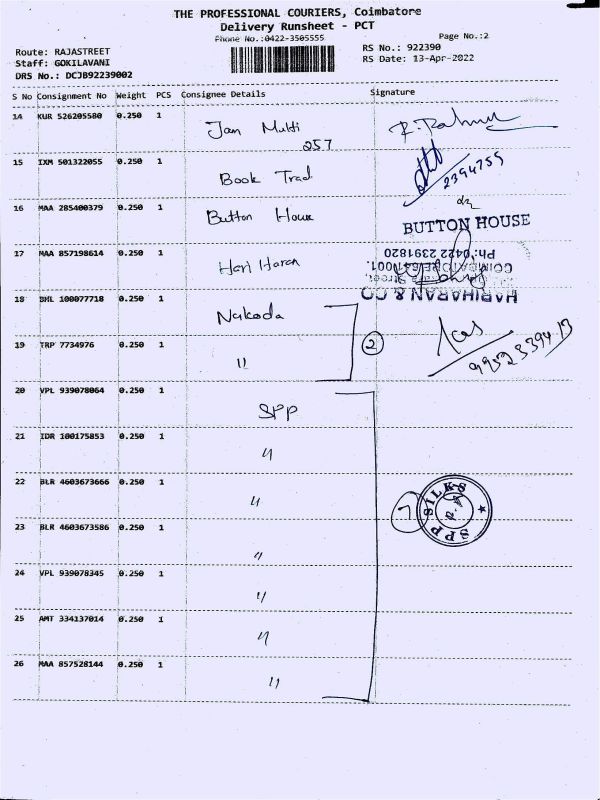 THE PROFESSIONAL COURIERS, Coimbatore
Delivery Runsheet - PCT
Phone No.:0422-3505555
Page No.:2
Route: RAJASTREET
RS No.: 922390
Staff: GOKILAVANI
RS Date: 13-Apr-2022
DRS No.: DCJB92239002
S No Consignment No Weight PCS Consignee Details Signature
14 KUR 526205580 0.250 1 Jan Multi
257
15 IXM 501322055 0.250 1 Book Trad 2394755
16 MAA 285400379 0.250 1 Button House
BUTTON HOUSE
17 MAA 857198614 0.250 1 Hari Haran
Ph: 0422 2391820
COIMBATORE-641001.
HARIHARAN & CO
18 BHL 100077718 0.250 1 Nakoda
19 TRP 7734976 0.250 1 〃 2
9952339413
20 VPL 939078064 0.250 1 SPP
21 IDR 100175853 0.250 1 〃
22 BLR 4603673666 0.250 1 〃 7
SPP SILKS
23 BLR 4603673586 0.250 1 〃
24 VPL 939078345 0.250 1 〃
25 AMT 334137014 0.250 1 〃
26 MAA 857528144 0.250 1 〃